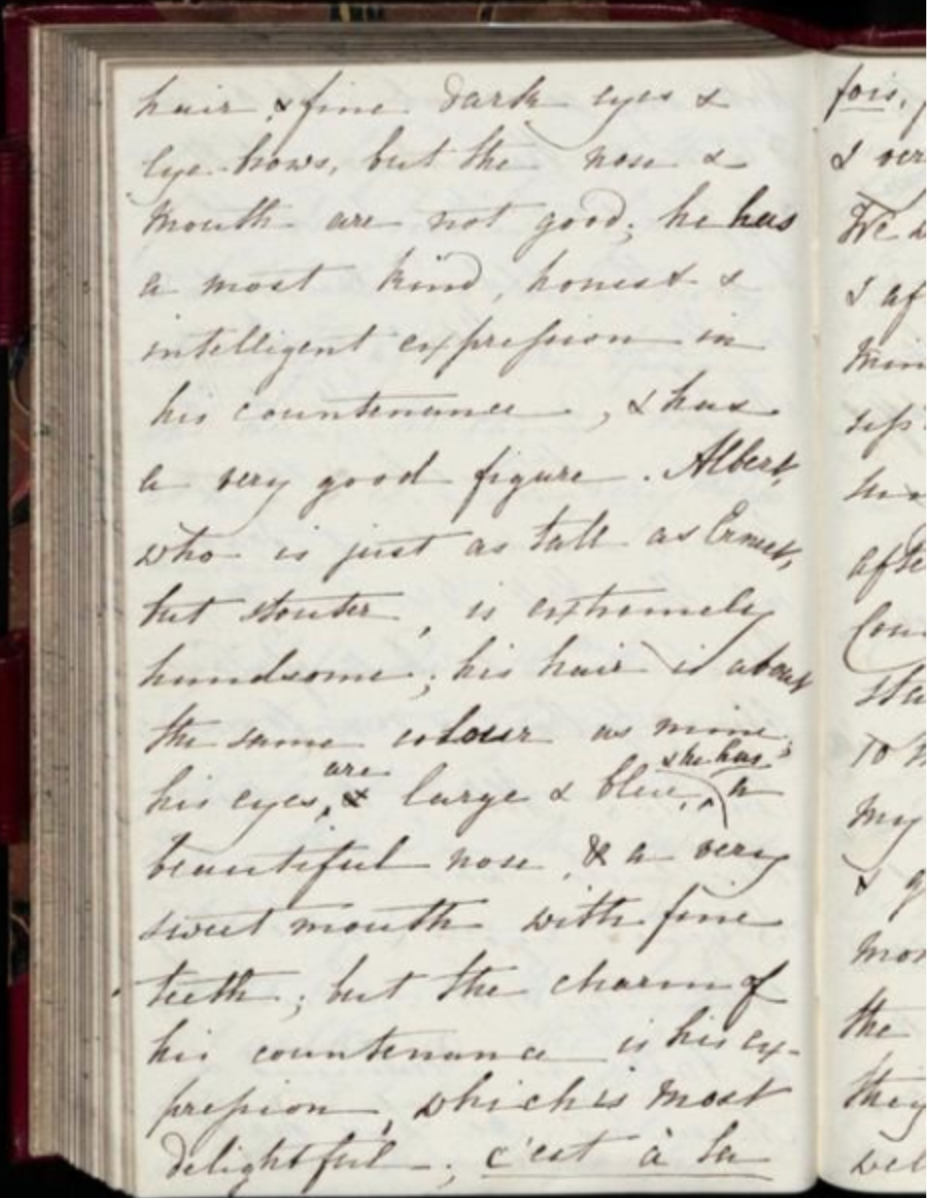 hair, & fine dark eyes &
eye-brows, but the nose &
mouth are not good; he has
a most kind, honest &
intelligent expression in
his countenance, & has
a very good figure. Albert,
who is just as tall as Ernest,
but stouter, is extremely
handsome; his hair is about
the same colour as mine;
are
he has
his eyes, & large & blue, a
beautiful nose, & a very
sweet mouth with fine
teeth; but the charm of
his countenance is his ex-
pression, which is most
delightful; c'est à la
fois,
& ver
We
& af
min
after
Cou
sta
to
my
& g
mor
the
they
wel